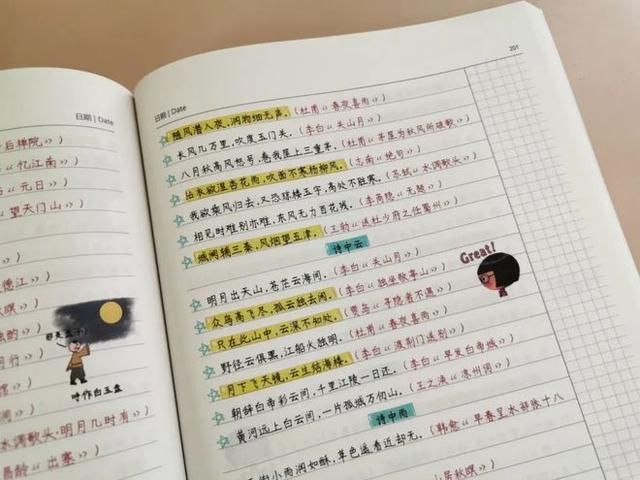 日期 | Date
后禅院》)
《忆江南》)
《元日》)
《望天门山》)
德江》)
呼作白玉盘
水调歌头·明月几时有》)
昌龄《出塞》)
201
日期 | Date
随风潜入夜,润物细无声。(杜甫《春夜喜雨》)
长风几万里,吹度玉门关。(李白《关山月》)
八月秋高风怒号,卷我屋上三重茅。(杜甫《茅屋为秋风所破歌》)
沾衣欲湿杏花雨,吹面不寒杨柳风。(志南《绝句》)
我欲乘风归去,又恐琼楼玉宇,高处不胜寒。(苏轼《水调歌头》)
相见时难别亦难,东风无力百花残。(李商隐《无题》)
城阙辅三秦,风烟望五津。(王勃《送杜少府之任蜀州》)
诗中云
明月出天山,苍茫云海间。(李白《关山月》)
众鸟高飞尽,孤云独去闲。(李白《独坐敬亭山》)
只在此山中,云深不知处。(贾岛《寻隐者不遇》)
野径云俱黑,江船火独明。(杜甫《春夜喜雨》)
月下飞天镜,云生结海楼。(李白《渡荆门送别》)
朝辞白帝彩云间,千里江陵一日还。(李白《早发白帝城》)
黄河远上白云间,一片孤城万仞山。(王之涣《凉州词》)
诗中雨
街小雨润如酥,草色遥看近却无。(韩愈《早春呈水部张十八
居秋暝》)
Great!